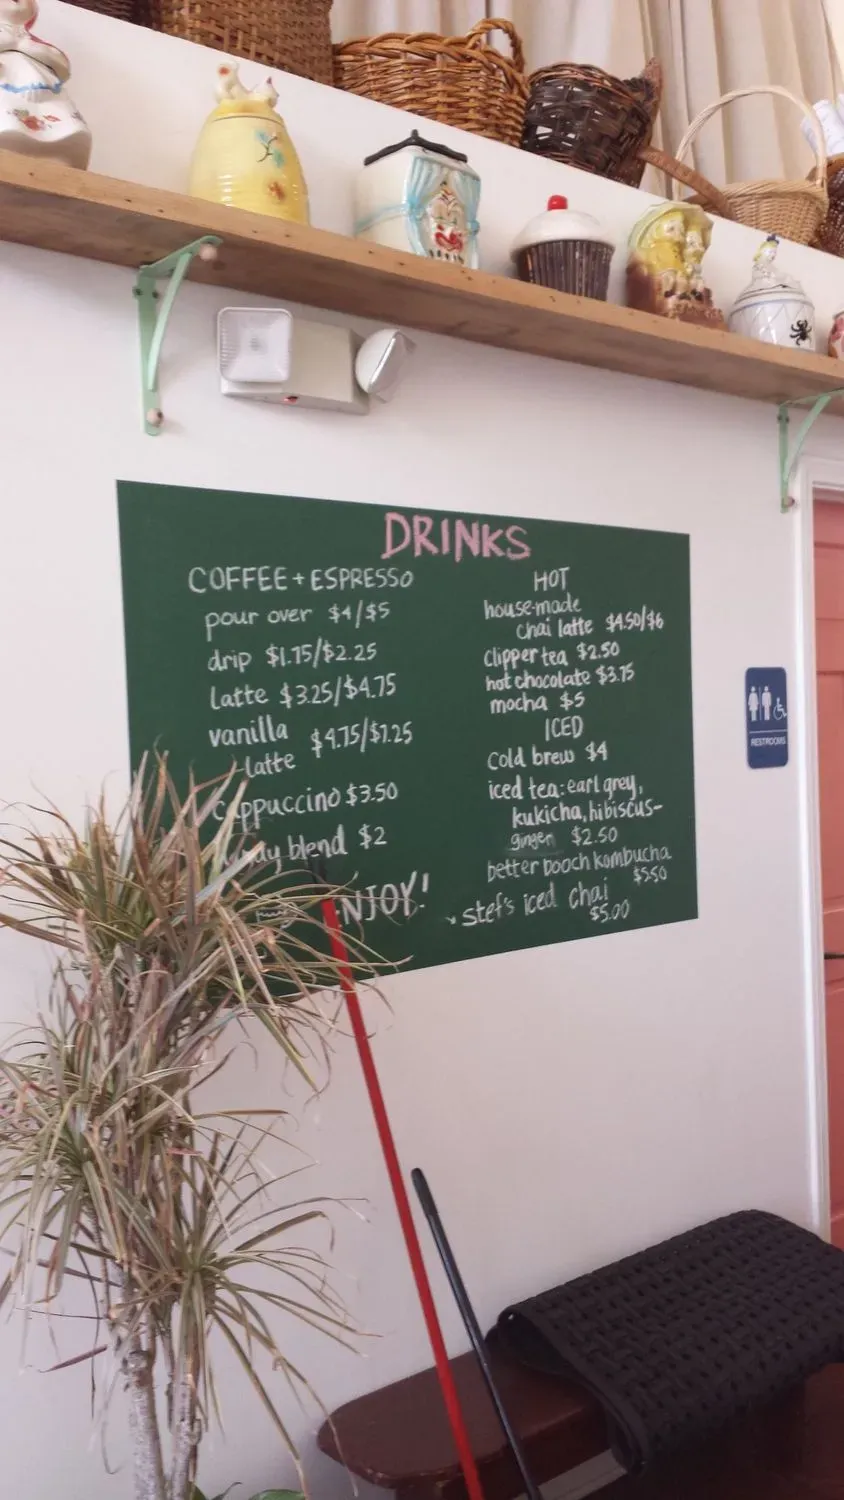 DRINKS
COFFEE + ESPRESSO
pour over $4/$5
drip $1.75/$2.25
latte $3.25/$4.75
vanilla
latte $4.75/$7.25
cappuccino $3.50
blend $2
ENJOY!
HOT
house-made
chai latte $4.50/$6
clipper tea $2.50
hot chocolate $3.75
mocha $5
ICED
cold brew $4
iced tea: earl grey,
kukicha, hibiscus-
ginger $2.50
better booch kombucha
$5.50
stef's iced chai
$5.00
RESTROOMS